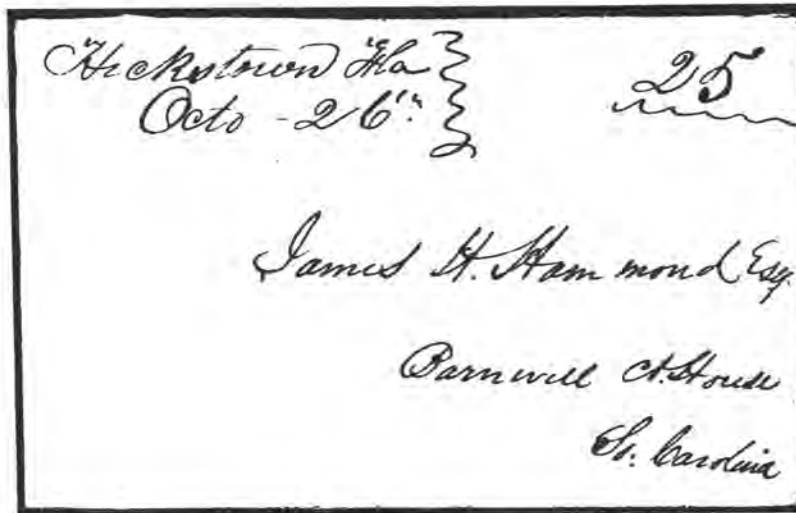 Hickstown Fla
25
Octo - 26th
James H. Hammond Esq.
Barnwell Ct. House
So. Carolina